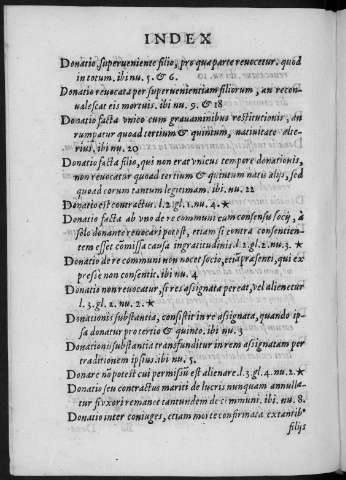 INDEX
Donatio superveniente filio, pro qua parte revocetur. quod
in totum. ibi nu. 5. & 6.
Donatio revocata per supervenientiam filiorum, an recon
valescat eis mortuis. ibi nu. 9. & 18
Donatio facta vnico cum gravaminibus restitutionis, an
rumpatur quoad tertium & quintum, nativitate alte
rius, ibi nu. 20
Donatio facta filio, qui non erat vnicus tempore donationis,
non revocatur quoad tertium & quintum natis alijs, sed
quod ad eorum tantum legitimam. ibi. nu. 22
Donatio est contractus. l. 2. gl. 1. nu. 4. ★
Donatio facta ab vno de re communi cum consensu socij, à
solo donante revocari potest, etiam si contra consentien-
tem esset cõmissa causa ingratitudinis. l. 2. gl. 2. nu. 3. ★
Donatio de re communi non nocet socio, etiã præsenti, qui ex
presse non consentit. ibi nu. 4
Donatio non revocatur, si res assignata pereat, vel alienetur
l. 3. gl. 2. nu. 2. ★
Donationis substantia, consistit in re assignata, quando ip-
sa donatur pro tertio & quinto. ibi nu. 3
Donationis substantia transfunditur in rem assignatam per
traditionem ipsius. ibi nu. 5.
Donare nõ potest cui permissũ est alienare. l. 3. gl. 4. nu. 2. ★
Donatio seu contractus mariti de lucris nunquam annulla-
tur si vxori remanet tantundem de communi. ibi. nu. 8.
Donatio inter coniuges, etiam morte confirmata extantib9
filijs